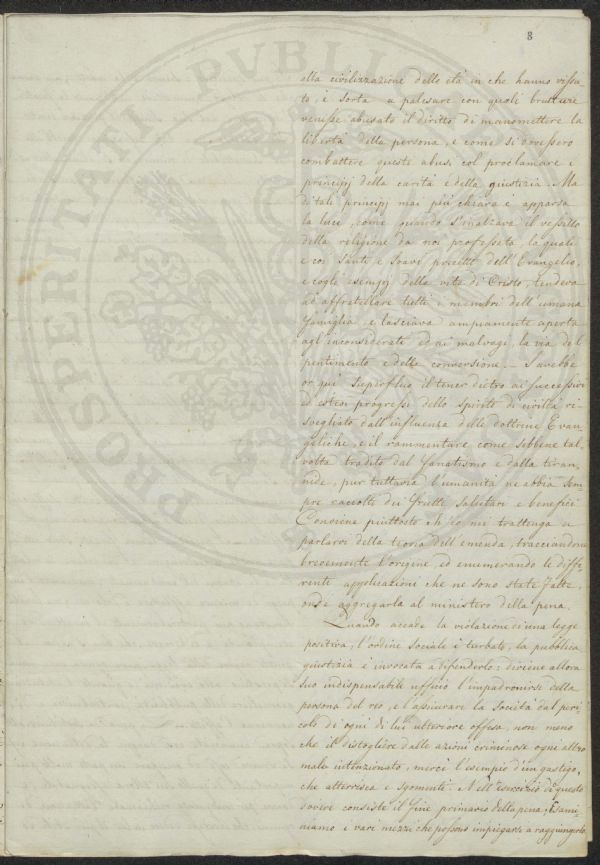 8
alla civilizzazione delle età in che hanno vissu-
to, è sorta a palesare con quali brutture
venisse abusato il diritto di manomettere la
libertà della persona, e come si dovessero
combattere questi abusi col proclamare i
principj della carità e della giustizia. Ma
di tali principj mai più chiara è apparsa
la luce, come quando s'inalzava il vessillo
della religione da noi professata, la quale
e coi santi e soavi precetti dell'Evangelio,
e cogli esempj della vita di Cristo, tendeva
ad affratellare tutti i membri dell'umana
famiglia, e lasciava ampiamente aperta
agl'inconsiderati ed ai malvagi, la via del
pentimento e della conversione. – Sarebbe
or qui superfluo il tener dietro ai successivi
ed estesi progressi dello spirito di civiltà ri-
svegliato dall'influenza delle dottrine Evan-
geliche, e il rammentare come sebbene tal-
volta tradito dal fanatismo e dalla tiran-
nide, pur tuttavia l'umanità ne abbia sem-
pre raccolti dei frutti salutari e benefici.
Conviene piuttosto ch'io mi trattenga a
parlarvi della teoria dell'emenda, tracciandone
brevemente l'origine, ed enumerando le diffe-
renti applicazioni che ne sono state fatte,
onde aggregarla al ministero della pena.
Quando accade la violazione di una legge
positiva, l'ordine sociale è turbato, la pubblica
giustizia è invocata a difenderlo: diviene allora
suo indispensabile ufficio l'impadronirsi della
persona del reo, e l'assicurare la Società dal peri-
colo di ogni di lui ulteriore offesa, non meno
che il distogliere dalle azioni criminose ogni altro
male intenzionato, mercè l'esempio d'un gastigo,
che atterrisca e sgomenti. Nell'esercizio di questo
dovere consiste il fine primario della pena, esami-
niamo i vari mezzi che possono impiegarsi a raggiungerlo
PRO VERITATI PVBLICO